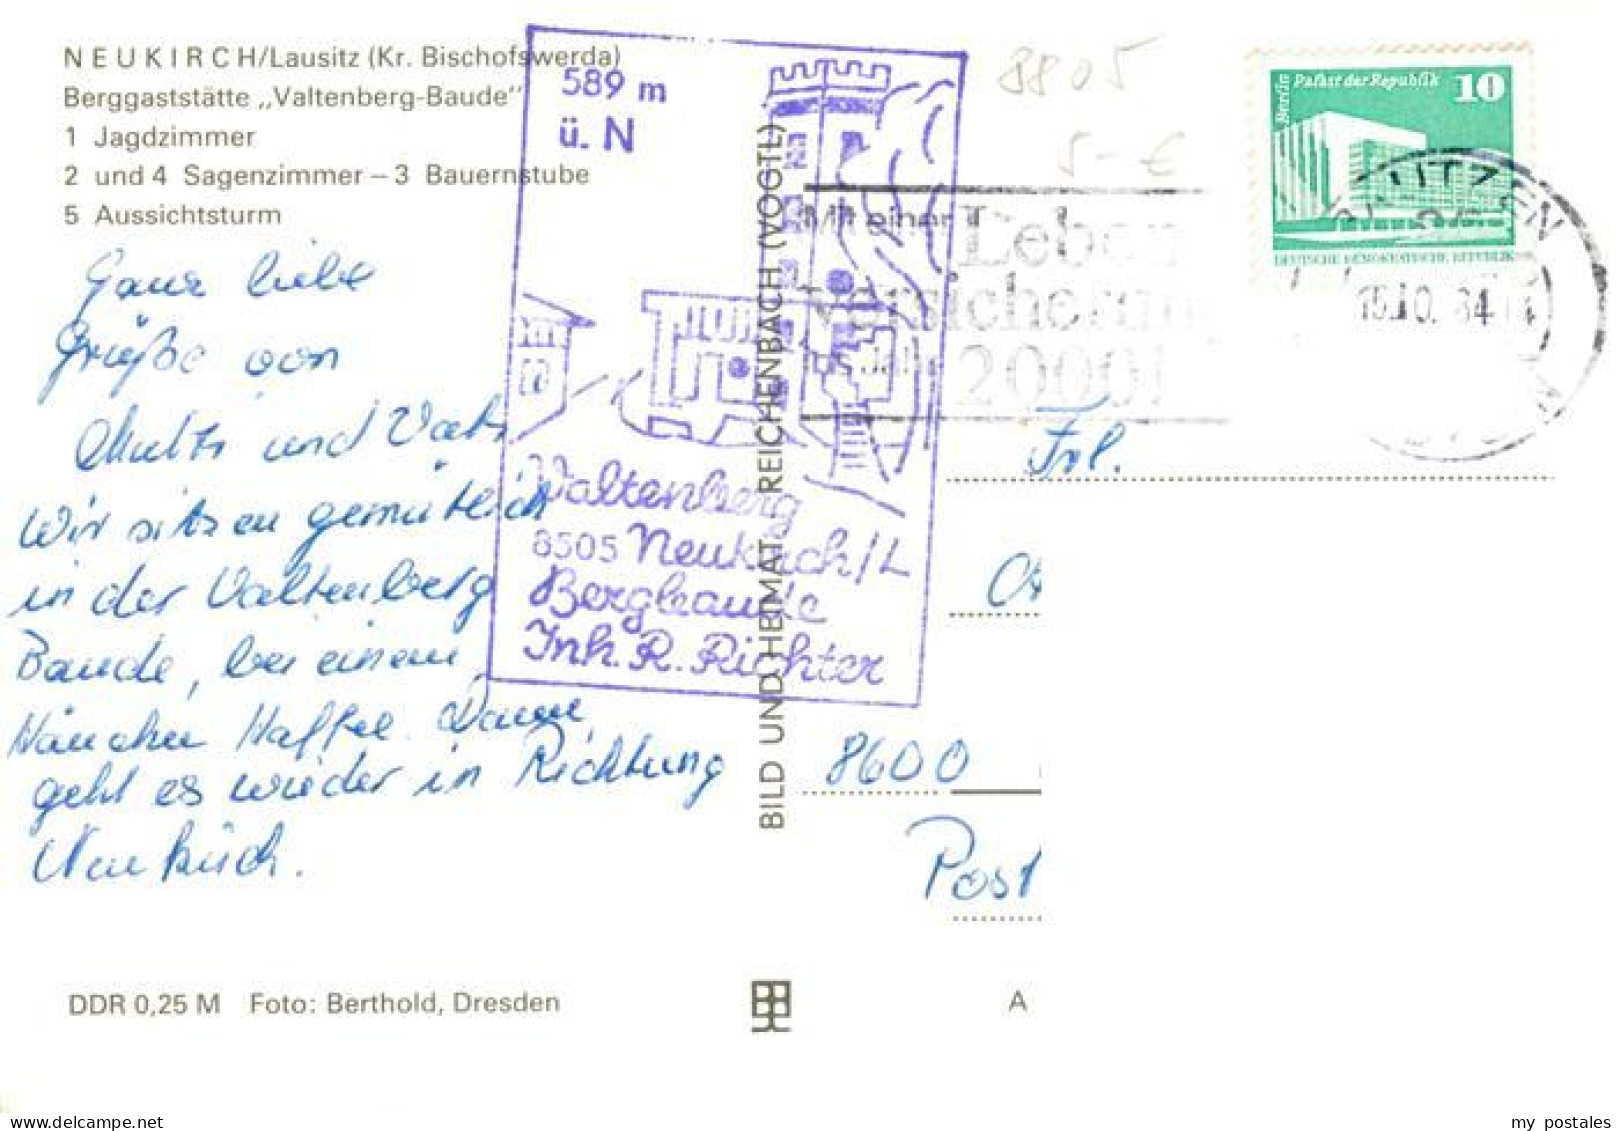 NEUKIRCH/Lausitz (Kr. Bischofswerda)
Berggaststätte „Valtenberg-Baude"
1 Jagdzimmer
2 und 4 Sagenzimmer – 3 Bauernstube
5 Aussichtsturm
Ganz liebe
Grüße von
Mutti und Vati
Wir sitzen gemütlich
in der Valtenberg
Baude, bei einem
Kännchen Kaffee. Dann
geht es wieder in Richtung
Neukirch.
DDR 0,25 M Foto: Berthold, Dresden
589 m
ü. N
Valtenberg
8505 Neukirch/L
Bergbaude
Inh. R. Richter
BILD UND HEIMAT REICHENBACH (VOGTL)
8805
5-€
Mit einer
Leben
Versicherun
ins Jahr
2000!
Berlin Palast der Republik 10
DEUTSCHE DEMOKRATISCHE REPUBLIK
BAUTZEN
15.10.84
Frl.
8600
Post
A
my postales